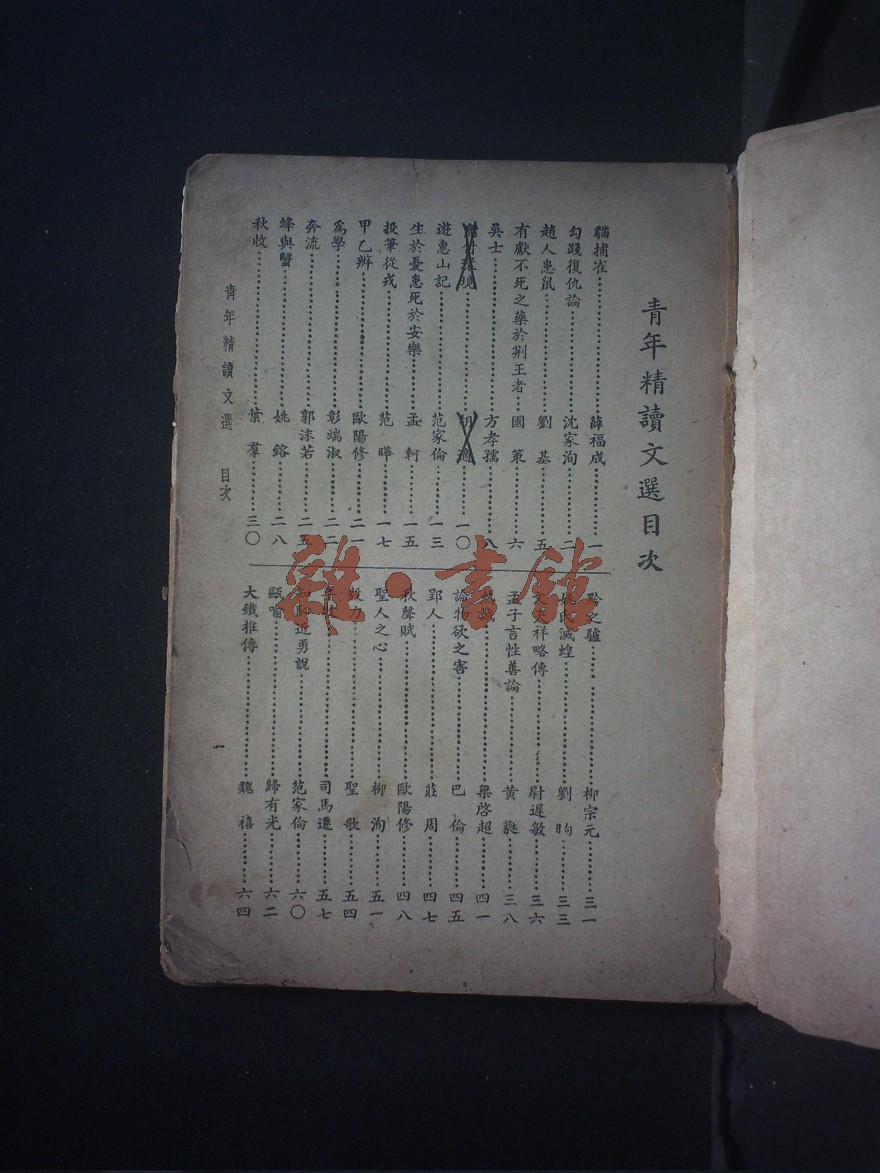 青年精讀文選目次
貓捕雀……薛福成……一
勾踐復仇論……沈家洵……二
趙人患鼠……劉基……五
有獻不死之藥於荆王者……國策……六
吳士……方孝孺……八
……一〇
遊惠山記……范家倫……一三
生於憂患死於安樂……孟軻……一五
投筆從戎……范曄……一七
甲乙辨……歐陽修……二一
為學……彭端淑……二二
奔流……郭沫若……二五
蜂與蟹……姚鎔……二八
秋收……葉羣……三〇
黔之驢……柳宗元……三一
姚氏滅蝗……劉昫……三三
文天祥略傳……尉遲敏……三六
孟子言性善論……黃……三八
梁啓超……四一
論物欲之害……巴倫……四五
郢人……莊周……四七
秋聲賦……歐陽修……四八
聖人之心……柳洵……五一
毅力……聖歌……五四
司馬遷……五七
知恥近勇說……范家倫……六〇
甌喻……歸有光……六二
大鐵椎傳……魏禧……六四
青年精讀文選 目次
一
雜·書館